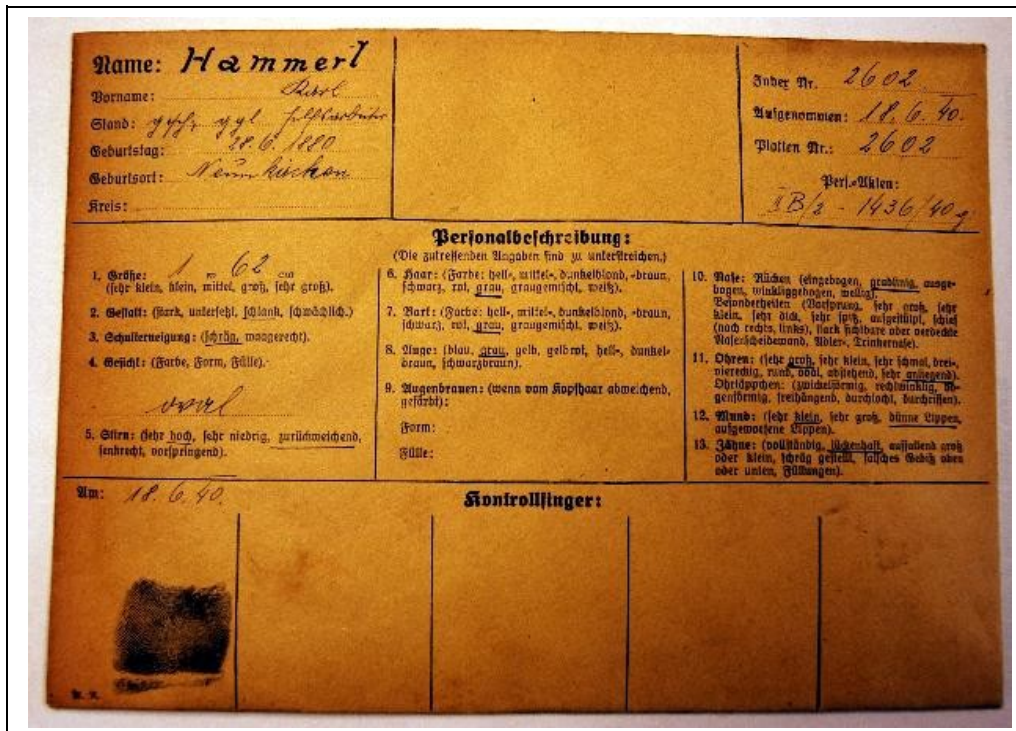 Name: Hammerl
Vorname: Karl
Stand: gesch. ggl. Hilfsarbeiter
Geburtstag: 28.6.1880
Geburtsort: Neunkirchen
Kreis:
Index Nr. 2602
Aufgenommen: 18.6.40.
Platten Nr.: 2602
Pers.-Akten:
II B/2 - 1436/40 g
Personalbeschreibung:
(Die zutreffenden Angaben sind zu unterstreichen.)
1. Größe: 1 m 62 cm
(sehr klein, klein, mittel, groß, sehr groß).
2. Gestalt: (stark, untersetzt, schlank, schwächlich.)
3. Schulterneigung: (schräg, waagerecht).
4. Gesicht: (Farbe, Form, Fülle).
oval
5. Stirn: (sehr hoch, sehr niedrig, zurückweichend,
senkrecht, vorspringend).
6. Haar: (Farbe: hell-, mittel-, dunkelblond, -braun,
schwarz, rot, grau, graugemischt, weiß).
7. Bart: (Farbe: hell-, mittel-, dunkelblond, -braun,
schwarz, rot, grau, graugemischt, weiß).
8. Auge: (blau, grau, gelb, gelbrot, hell-, dunkel-
braun, schwarzbraun).
9. Augenbrauen: (wenn vom Kopfhaar abweichend,
gefärbt):
Form:
Fülle:
10. Nase: Rücken (eingebogen, gradlinig, ausge-
bogen, winkliggebogen, wellig).
Besonderheiten (Vorsprung, sehr groß, sehr
klein, sehr dick, sehr spitz, aufgestülpt, schief
(nach rechts, links), stark sichtbare oder verdeckte
Nasenscheidewand, Adler-, Trinkernase).
11. Ohren: (sehr groß, sehr klein, sehr schmal, drei-,
viereckig, rund, oval, abstehend, sehr anliegend).
Ohrläppchen: (zwickelförmig, rechtwinklig, bo-
genförmig, freihängend, durchlocht, durchrissen).
12. Mund: (sehr klein, sehr groß, dünne Lippen,
aufgeworfene Lippen).
13. Zähne: (vollständig, lückenhaft, auffallend groß
oder klein, schräg gestellt, falsches Gebiß oben
oder unten, Füllungen).
Am: 18.6.40.
Kontrollfinger: